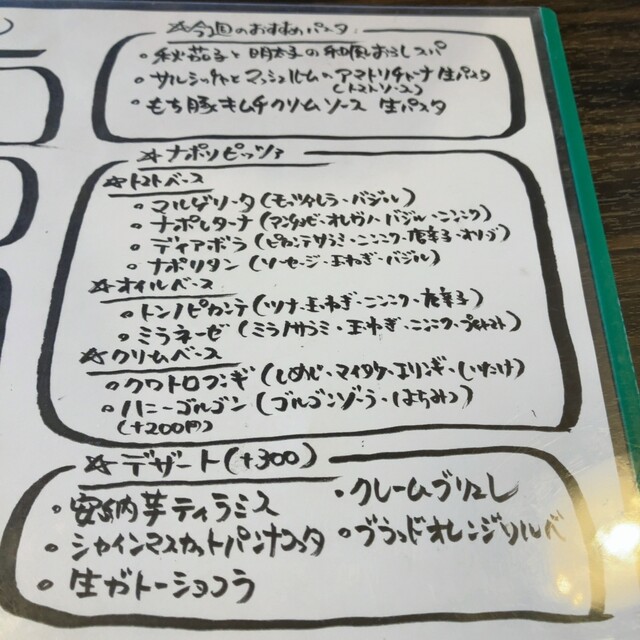 ☆今回のおすすめパスタ
・秋茄子と明太子の和風おろしスパ
・サルシッチャとマッシュルームのアマトリチャーナ 生パスタ
(トマトソース)
・もち豚キムチクリームソース 生パスタ
☆ナポリピッツァ
☆トマトベース
・マルゲリータ(モッツァレラ・バジル)
・ナポレターナ(アンチョビ・オレガノ・バジル・ニンニク)
・ディアボラ(ピカンテサラミ・ニンニク・唐辛子・オリーブ)
・ナポリタン(ソーセージ・玉ねぎ・バジル)
☆オイルベース
・トンノピカンテ(ツナ・玉ねぎ・ニンニク・唐辛子)
・ミラネーゼ(ミラノサラミ・玉ねぎ・ニンニク・プチトマト)
☆クリームベース
・クワトロフンギ(しめじ・マイタケ・エリンギ・しいたけ)
・ハニーゴルゴン(ゴルゴンゾーラ・はちみつ)
(+200円)
☆デザート(+300)
・安納芋ティラミス
・シャインマスカットパンナコッタ
・生ガトーショコラ
・クレームブリュレ
・ブラッドオレンジソルベ